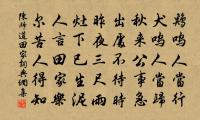 鷄鳴人當行
犬鳴人當歸
秋來公事急
出處不待時
昨夜三尺雨
灶下已生泥
人言田家樂
尔苦人得知
陳師道田家詞典網集